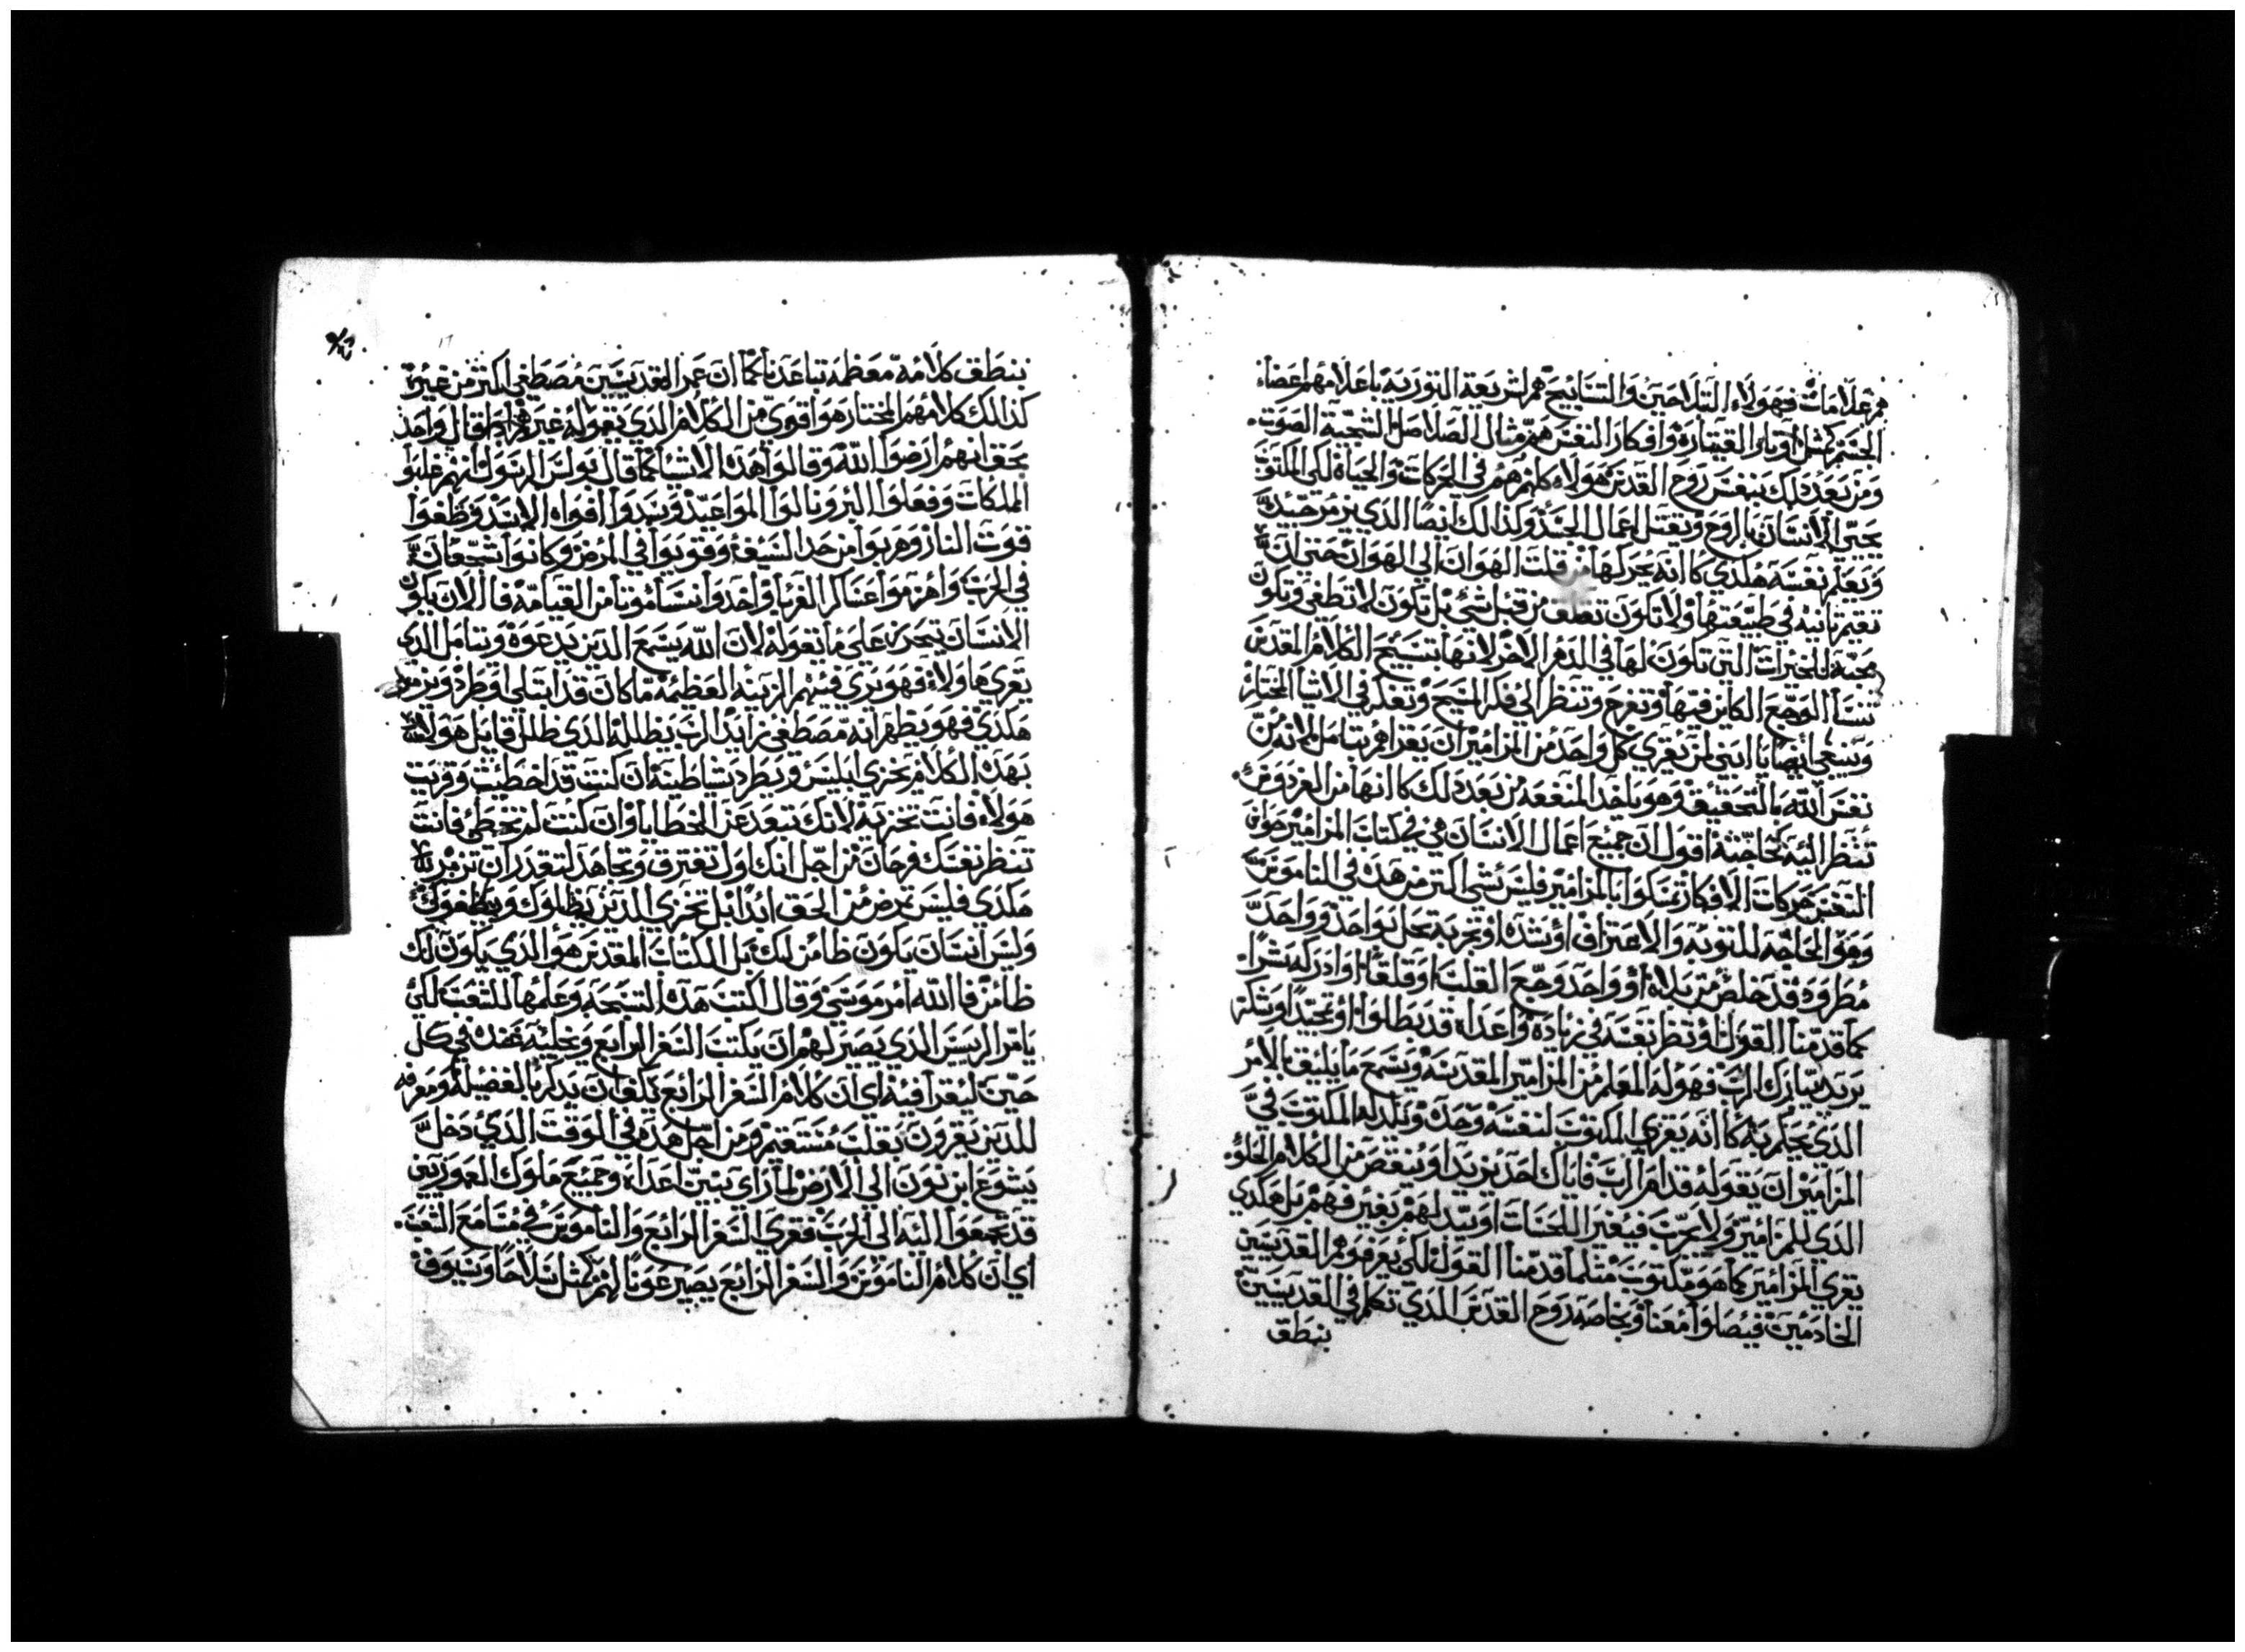 هم علامات فهولاء التلاحين والتسابيح هم لشريعة التوريه باعلامهم اعضاء
الجسم كمثل اوتار القيتاره وافكار النفس هم مثال الصلاصل الشجية الصوت
ومن بعد ذلك بنفس روح القدس هولاء كلهم هم في الحركات والحياة لكي المكتوب
يحيي الانسان بالروح ويقتل اعمال الجسد وكذالك ايضا الذي يزمر جيد
ويعلم نفسه هكذي كانه يحركها من قلت الهوان الي الهوان حتي ان
نعيم تانيه في طبيعتها ولا تكون تقلق من قبل شي بل تكون لا تطغي وتكون
محبة للخيرات التي تكون لها في الدهر الاخر لانها بتسبيح الكلام المقدس
تنسا الوجع الكاين فيها وتفرح وتنظر الي فكر المسيح وتفكر في الاشيا المختار
وينبغي ايضا يا ابني لمن يقري كل واحد من المزامير ان يقراهم بتامل لانه من
نفس الله بالتحقيق وهو ياخد المنفعه من بعد ذلك كانها من الفردوس
تنظر اليه كحاجته اقول ان جميع اعمال الانسان هي في كتاب المزامير
النفس حركات الافكار تمسكوا بالمزامير فليس شي اكتر من هده في الناموس
وهو الحاجه للتوبه والاعتراف او شده او تجربة تحل بواحد وواحد
مطرود قد خلص من بلاه او واحد وجع القلب او قلقا او ادركه شرا
كما قدمنا القول او نظر نفسه في زياده واعداه قد بطلوا او تمجيدا وشكر
يريد يبارك الرب فهو له المعلم من المزامير المقدسه ويسمع ما يليق بالامر
الذي يحل به كانه يقري المكتوب لنفسه وحده ولذلك المكتوب في
المزامير ان يقوله قدام الرب فاياك احد يزيد او ينقص من الكلام الحلو
الذي للمزامير ولا يجرب فيغير اللحنات او يبدلهم بغير فهم بل هكدي
يقري المزامير كما هو مكتوب مثلما قدمنا القول لكي يعرفوهم القديسين
الخادمين فيصلوا معنا وبخاصه روح القدس الذي تكلم في القديسين
بنطق
بنطق كلامه معظمه تباعدنا كما ان عمر القديسين مصطفي اكتر من غيره
كذالك كلامهم المختار هو اقوي من الكلام الذي يقوله غيرهم قال واحد
بحق انهم ارضوا الله وقالوا هذه الاشيا كما قال بولس الرسول انهم غلبوا
الملكات وفعلوا البر ونالوا المواعيد وسدوا افواه الاسد وظفوا
قوت النار وهربوا من حد السيف وقويوا في المرض وكانوا شجعان
في الحرب واهزموا عساكر الغربا واخدوا نساء موتا من القيامة فاالان يكون
الانسان يتحرز علي ما تقوله لان الله يسمع الدين يدعوه وتامل الدي
يقري هاولاء فهو يري فيهم الزينه العظيمه ما كان قد ابتلي او طرد ويزمر
هكدي فهو يظهر انه مصطفي زايد الرب يظلله الدي ظلل قايل هولاء
بهده الكلام يخزي ابليس ويطرد شياطينه ان كنت قد اخطيت وقريت
هولاء فانت تخزيه لانك تبعد عن الخطايا وان كنت لم تخطئ فانت
تنظر نفسك فرحان من اجل انك اول تعترف وتجاهد لتقدر ان تزمر
هكدي فليس تمرض من الحق ابدا بل تخزي الدين يظلوك ويبطعوك
وليس انسان يكون ظامن لك بل الكتاب المقدس هو الدي يكون لك
ظامن فالله امر موسي وقال اكتب هده التسبحه وعلمها للشعب لكي
يامر الريس الدي يصير لهم ان يكتب السفر الرابع ويخليه عنده في كل
حين ليقرا فيه اي ان كلام السفر الرابع تكفي ان يدكر بالفضيله ومعرفه
للدين يقرون بقلب مستقيم ومن اجل هده في الوقت الدي دخل
يشوع ابن نون الي الارض لما راي بنين اعداه وجميع ملوك العموريين
قد تجمعوا اليه الي الحرب فقري السفر الرابع والناموس في مسامع الشعب
اي ان كلام الناموس والسفر الرابع يصير عونا لهم كمثل سلاحا وسيوف